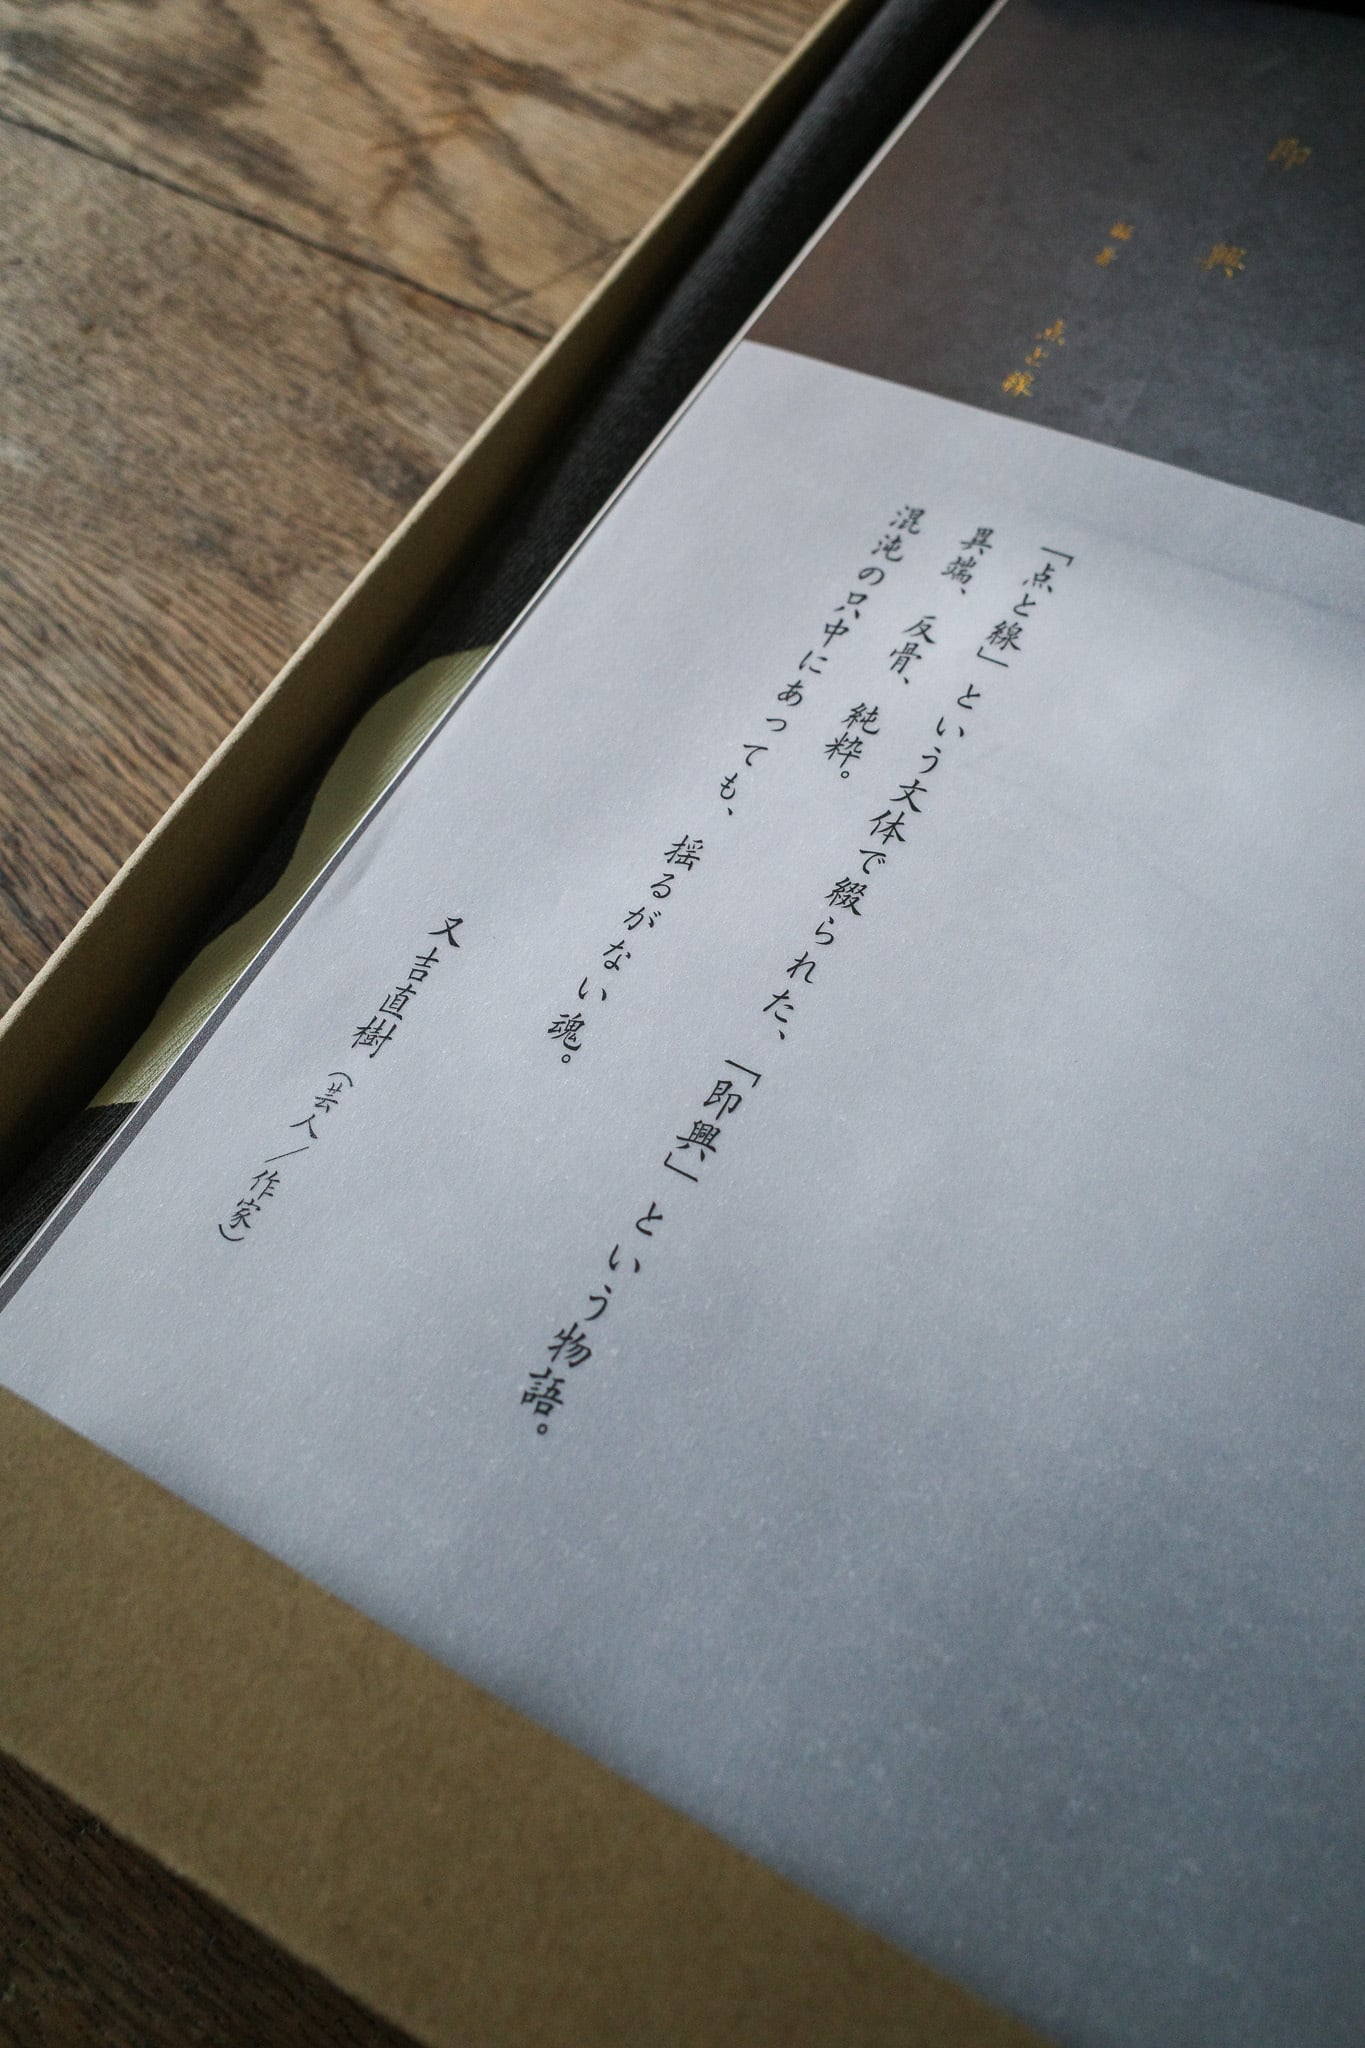 即興
編著 点と線
「点と線」という文体で綴られた、「即興」という物語。
異端、反骨、純粋。
混沌の只中にあっても、揺るがない魂。
又吉直樹(芸人/作家)